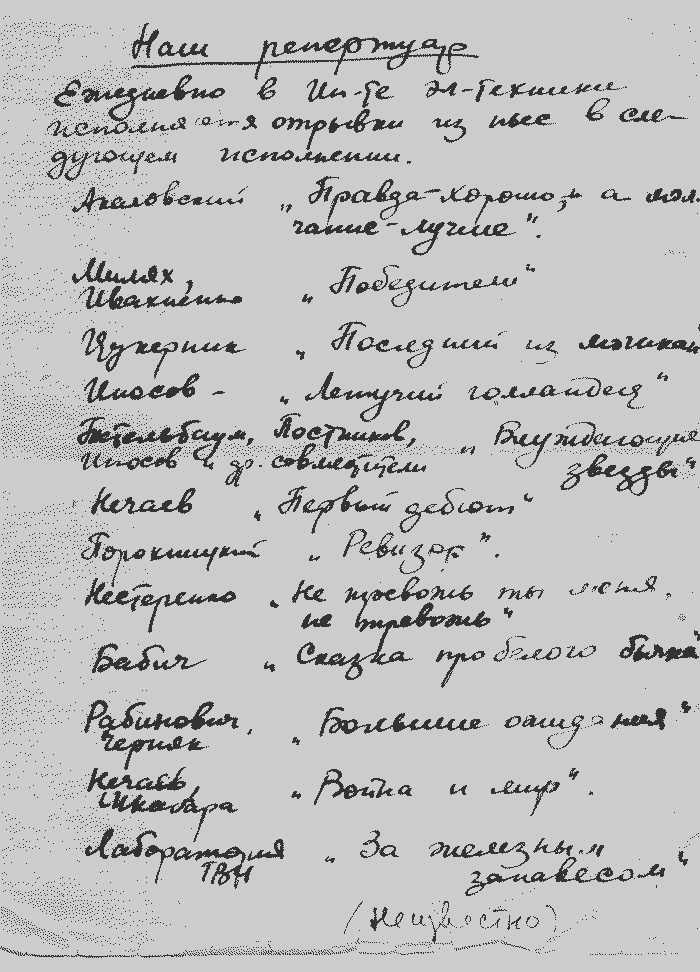 Наш репертуар
Ежедневно в Ин-те эл-техники
исполняются отрывки из пьес в сле-
дующем исполнении.
Акаловский „Правда-хорошо, а мол-
чание-лучше".
Милях,
Ивахненко „Победители"
Цукерник „Последний из могикан"
Иносов - „Летучий голландец"
Тетельбаум, Постников, „Блуждающие
Иносов и др. совместители звезды"
Нечаев „Первый дебют"
„Ревизор".
Нестеренко „Не тревожь ты меня,
не тревожь"
Бабич „Сказка про белого бычка"
Рабинович, „Большие ожидания"
Черняк
Нечаев, „Война и мир".
Шкабара
Лаборатория „За железным
ТВН занавесом"
(Неизвестно)